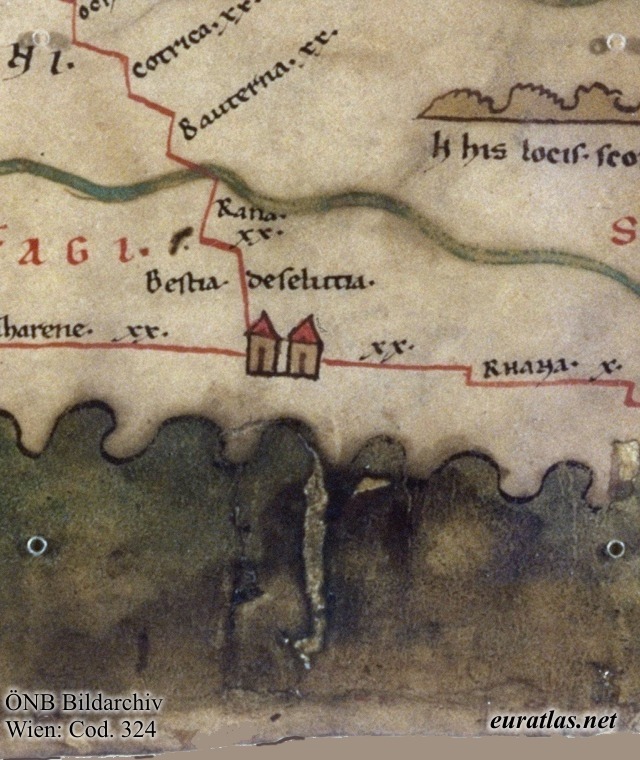 cotrica. xx.
Bauterna. xx.
H his locis. sco
Rana.
xx.
AGI.
S
Bestia deselutia.
harene. xx.
xx.
Rhaha. x.
ÖNB Bildarchiv
Wien: Cod. 324
euratlas.net